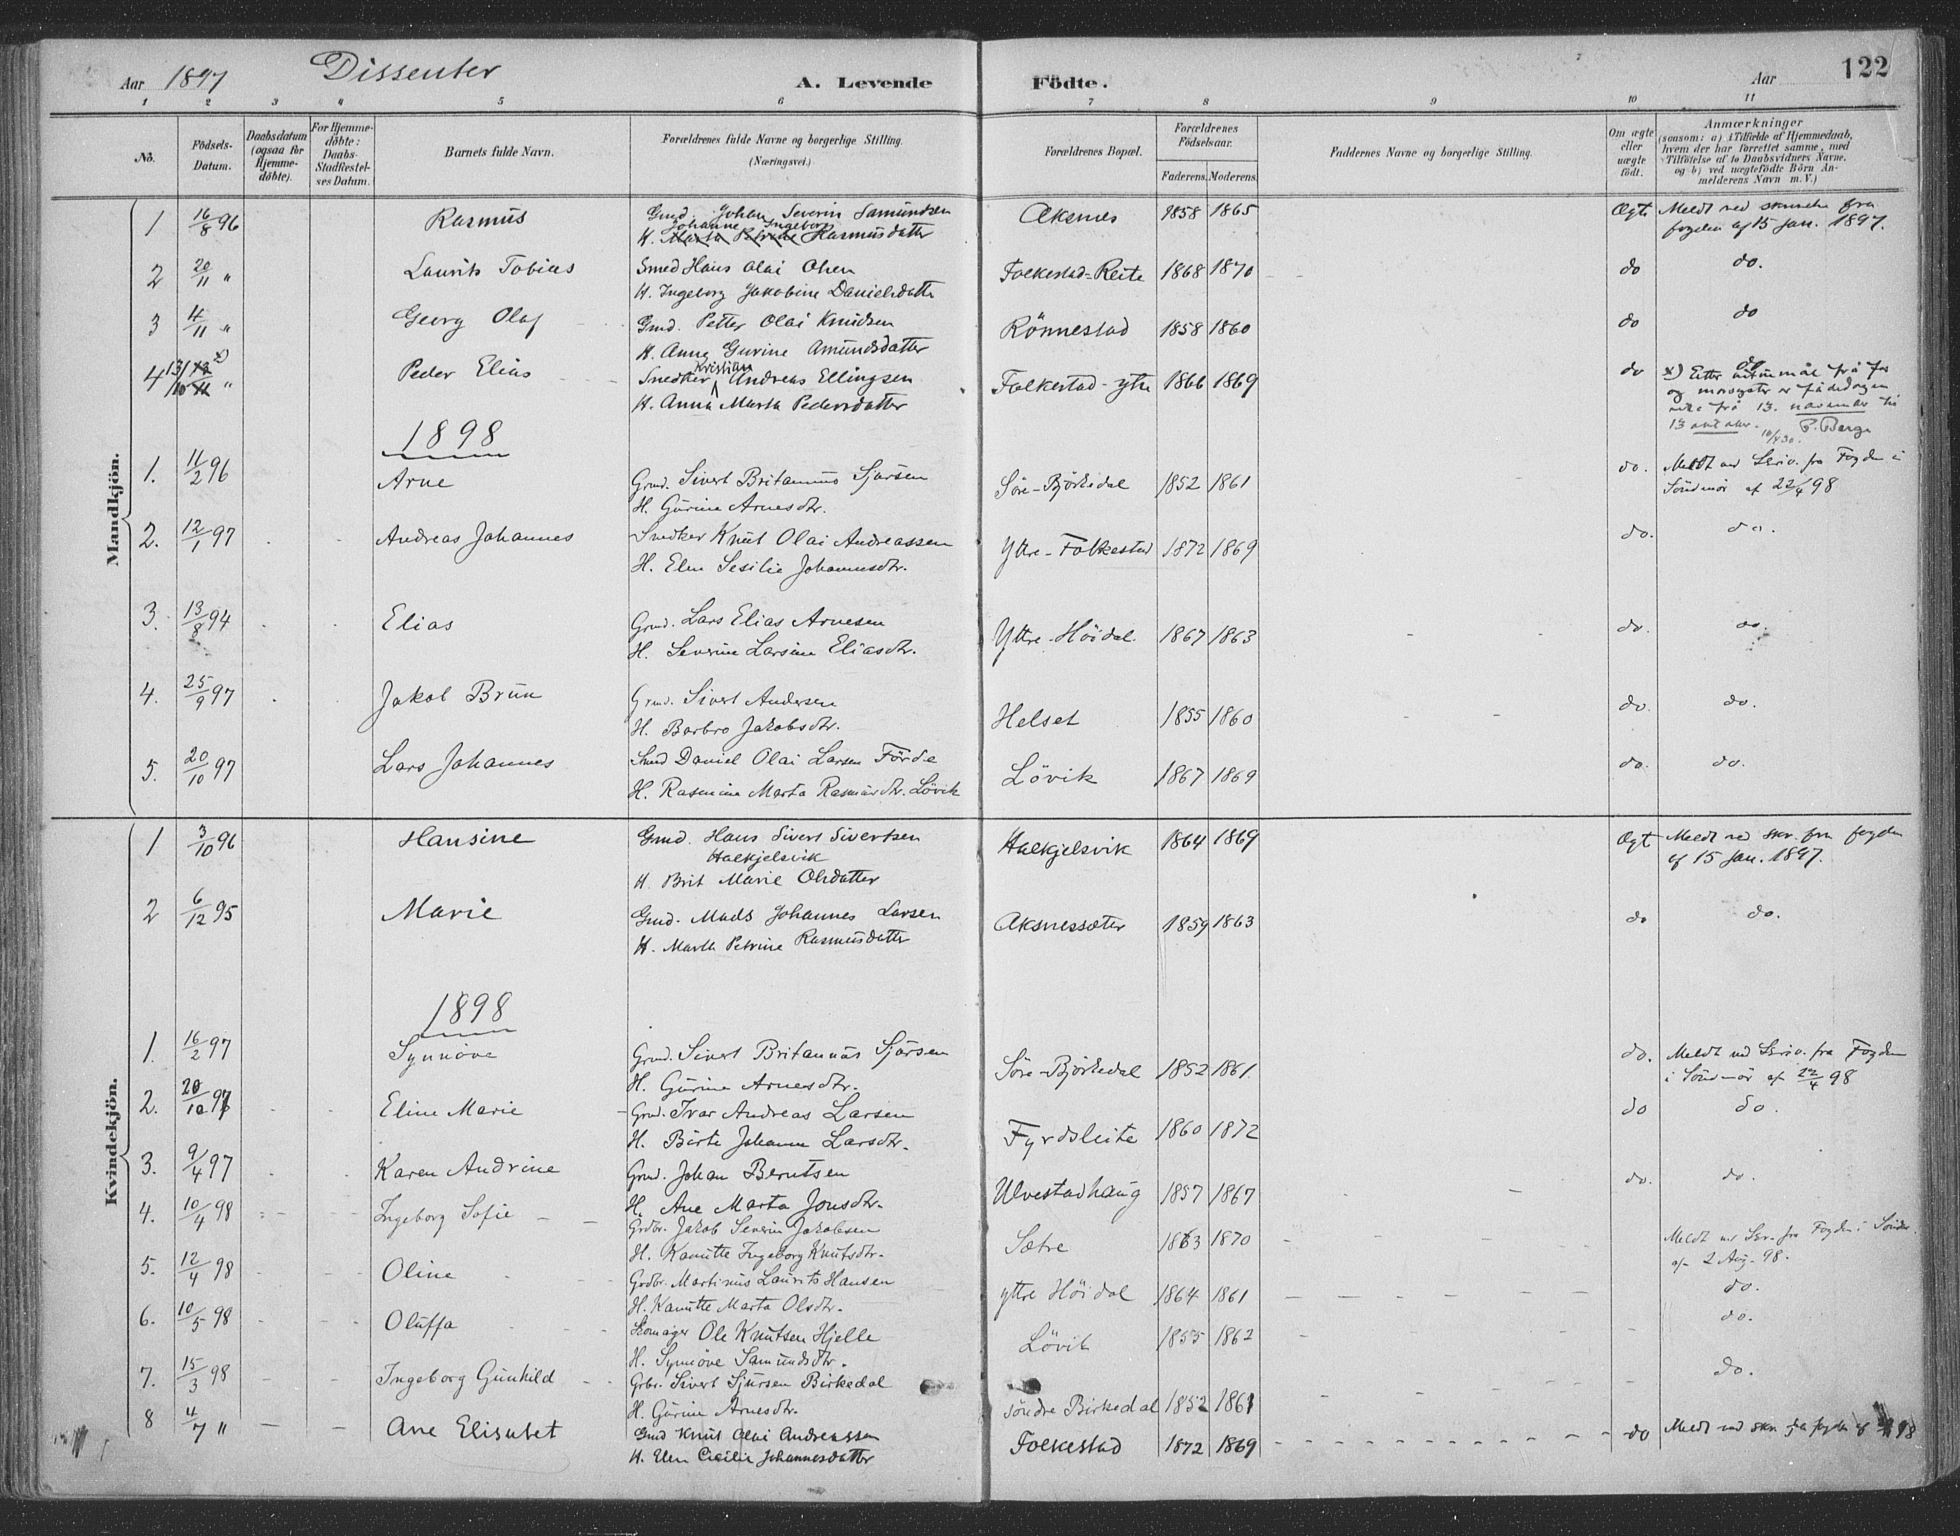 Aar 1897 Dissenter A. Levende Födte. Aar 122
1 2 3 4 5 6 7 8 9 10 11
No. Födsels-Datum. Daabsdatum (ogsaa for Hjemme-döbte). For Hjemme-döbte: Daabs-Stadfæstel-ses Datum. Barnets fulde Navn. Forældrenes fulde Navne og borgerlige Stilling. (Næringsvei.) Forældrenes Bopæl. Forældrenes Födselsaar. Faderens. Moderens. Faddernes Navne og borgerlige Stilling. Om ægte eller uægte födt. Anmærkninger (saasom: a) i Tilfælde af Hjemmedaab, hvem der har forrettet samme, med Tilföielse af to Daabsvidners Navne, og b) ved uægtefödte Börn Anmelderens Navn m. V.)
Mandkjön.
1 16/8 96 Rasmus Gmd. Johan Severin Samundsen Aksnes 1858 1865 Ægte Meldt ved skrivelse fra
Johanne Ingeborg
H. Marta Petrine Rasmusdatter fogden af 15 Jan. 1897.
2 20/11 " Laurits Tobias Smed Hans Olai Olsen Folkestad-Reite 1868 1870 do do.
H. Ingeborg Jakobine Danielsdatter
3 4/11 " Georg Olaf Gmd. Petter Olai Knudsen Rönnestad 1858 1860 do do
H. Anne Gurine Amundsdatter
4 13/10 12/11 x) " Peder Elias Snedker Kristian Andreas Ellingsen Folkestad-ytre 1866 1869 do x) Etter frå far
H. Anna Marta Pedersdatter og fødedagen
frå 13. november til
13 P. Berge
1898
1. 11/2 96 Arne Grmd. Sivert Britannus Sjursen Söre-Björkedal 1852 1861 do. Meldt ved Skriv. fra Fogden i
H. Gurine Arnesdtr. Söndmör af 22/4 98
2. 12/1 97 Andreas Johannes Snedker Knut Olai Andreassen Yttre-Folkestad 1872 1869 do. do.
H. Elen Sesilie Johannesdtr.
3. 13/8 94 Elias Grmd. Lars Elias Arnesen Yttre-Höidal 1867 1863 do. do.
H. Severine Larsine Eliasdtr.
4. 25/9 97 Jakob Brun Grmd. Sivert Andersen Helset 1855 1860 do. do.
H. Barbro Jakobsdtr.
5. 20/10 97 Lars Johannes Smd Daniel Olai Larsen Förde Lövik 1867 1869 do. do.
H. Rasmine Marta Rasmusdtr. Lövik
Kvindekjön.
1 3/10 96 Hansine Gmd. Hans Sivert Sivertsen Halkjelsvik 1864 1869 Ægt Meldt ved skr. fra fogden
Halkjelsvik af 15 Jan. 1897.
H. Brit Marie Olsdatter
2 6/12 95 Marie Gmd. Mads Johannes Larsen Aksnessæter 1859 1863 do do.
H. Marta Petrine Rasmusdatter
1898
1. 16/2 97 Synnöve Grmd. Sivert Britannus Sjursen Söre-Björkedal 1852 1861 do. Meldt ved Skriv. fra Fogden
H. Gurine Arnesdtr. i Söndmör af 22/4 98
2. 20/10 97 Eline Marie Grmd. Ivar Andreas Larsen Fyrdsleite 1860 1872 do do.
H. Birte Johanne Larsdtr.
3. 9/4 97 Karen Andrine Grmd. Johan Berntsen Ulvestadhaug 1857 1867 do. do.
H. Ane Marta Jonsdtr.
4. 10/4 98 Ingeborg Sofie Grdbr. Jakob Severin Jakobsen Sætre 1863 1870 Meldt ved Skr. fra Fogden i Söndm.
H. Kanutte Ingeborg Knutsdtr. af 2 Aug. 98.
5. 12/4 98 Oline Grdbr. Martinus Laurits Hansen yttre Höidal 1864 1861 do.
H. Kanutte Marta Olsdtr.
6. 10/5 98 Oluffa Skomager Ole Knutsen Hjelle Lövik 1855 1862 do.
H. Synnöve Samundsdtr.
7. 15/3 98 Ingeborg Gunhild Grbr. Sivert Sjursen Birkedal söndre Birkedal 1852 1861 do.
H. Gurine Arnesdtr.
8 4/7 " Ane Elisabet Gmd Knut Olai Andreassen Folkestad 1872 1869 do Meldt ved skr. fra fogden af 98
H. Elen Cicilie Johannesdatter